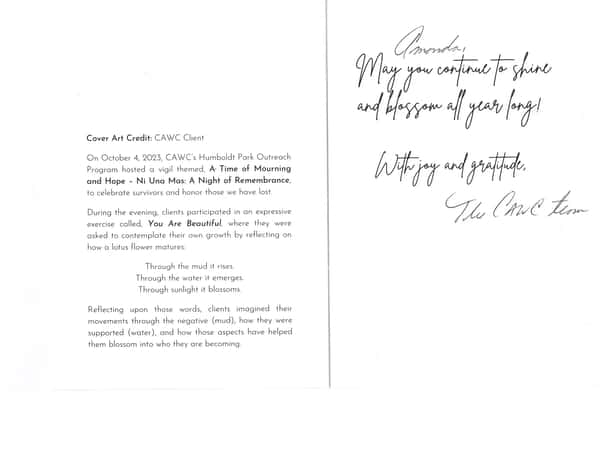 Cover Art Credit: CAWC Client
On October 4, 2023, CAWC's Humboldt Park Outreach
Program hosted a vigil themed, A Time of Mourning
and Hope – Ni Una Mas: A Night of Remembrance,
to celebrate survivors and honor those we have lost.
During the evening, clients participated in an expressive
exercise called, You Are Beautiful, where they were
asked to contemplate their own growth by reflecting on
how a lotus flower matures:
Through the mud it rises.
Through the water it emerges.
Through sunlight it blossoms.
Reflecting upon those words, clients imagined their
movements through the negative (mud), how they were
supported (water), and how those aspects have helped
them blossom into who they are becoming.
Amanda,
May you continue to shine
and blossom all year long!
With joy and gratitude,
The CAWC team